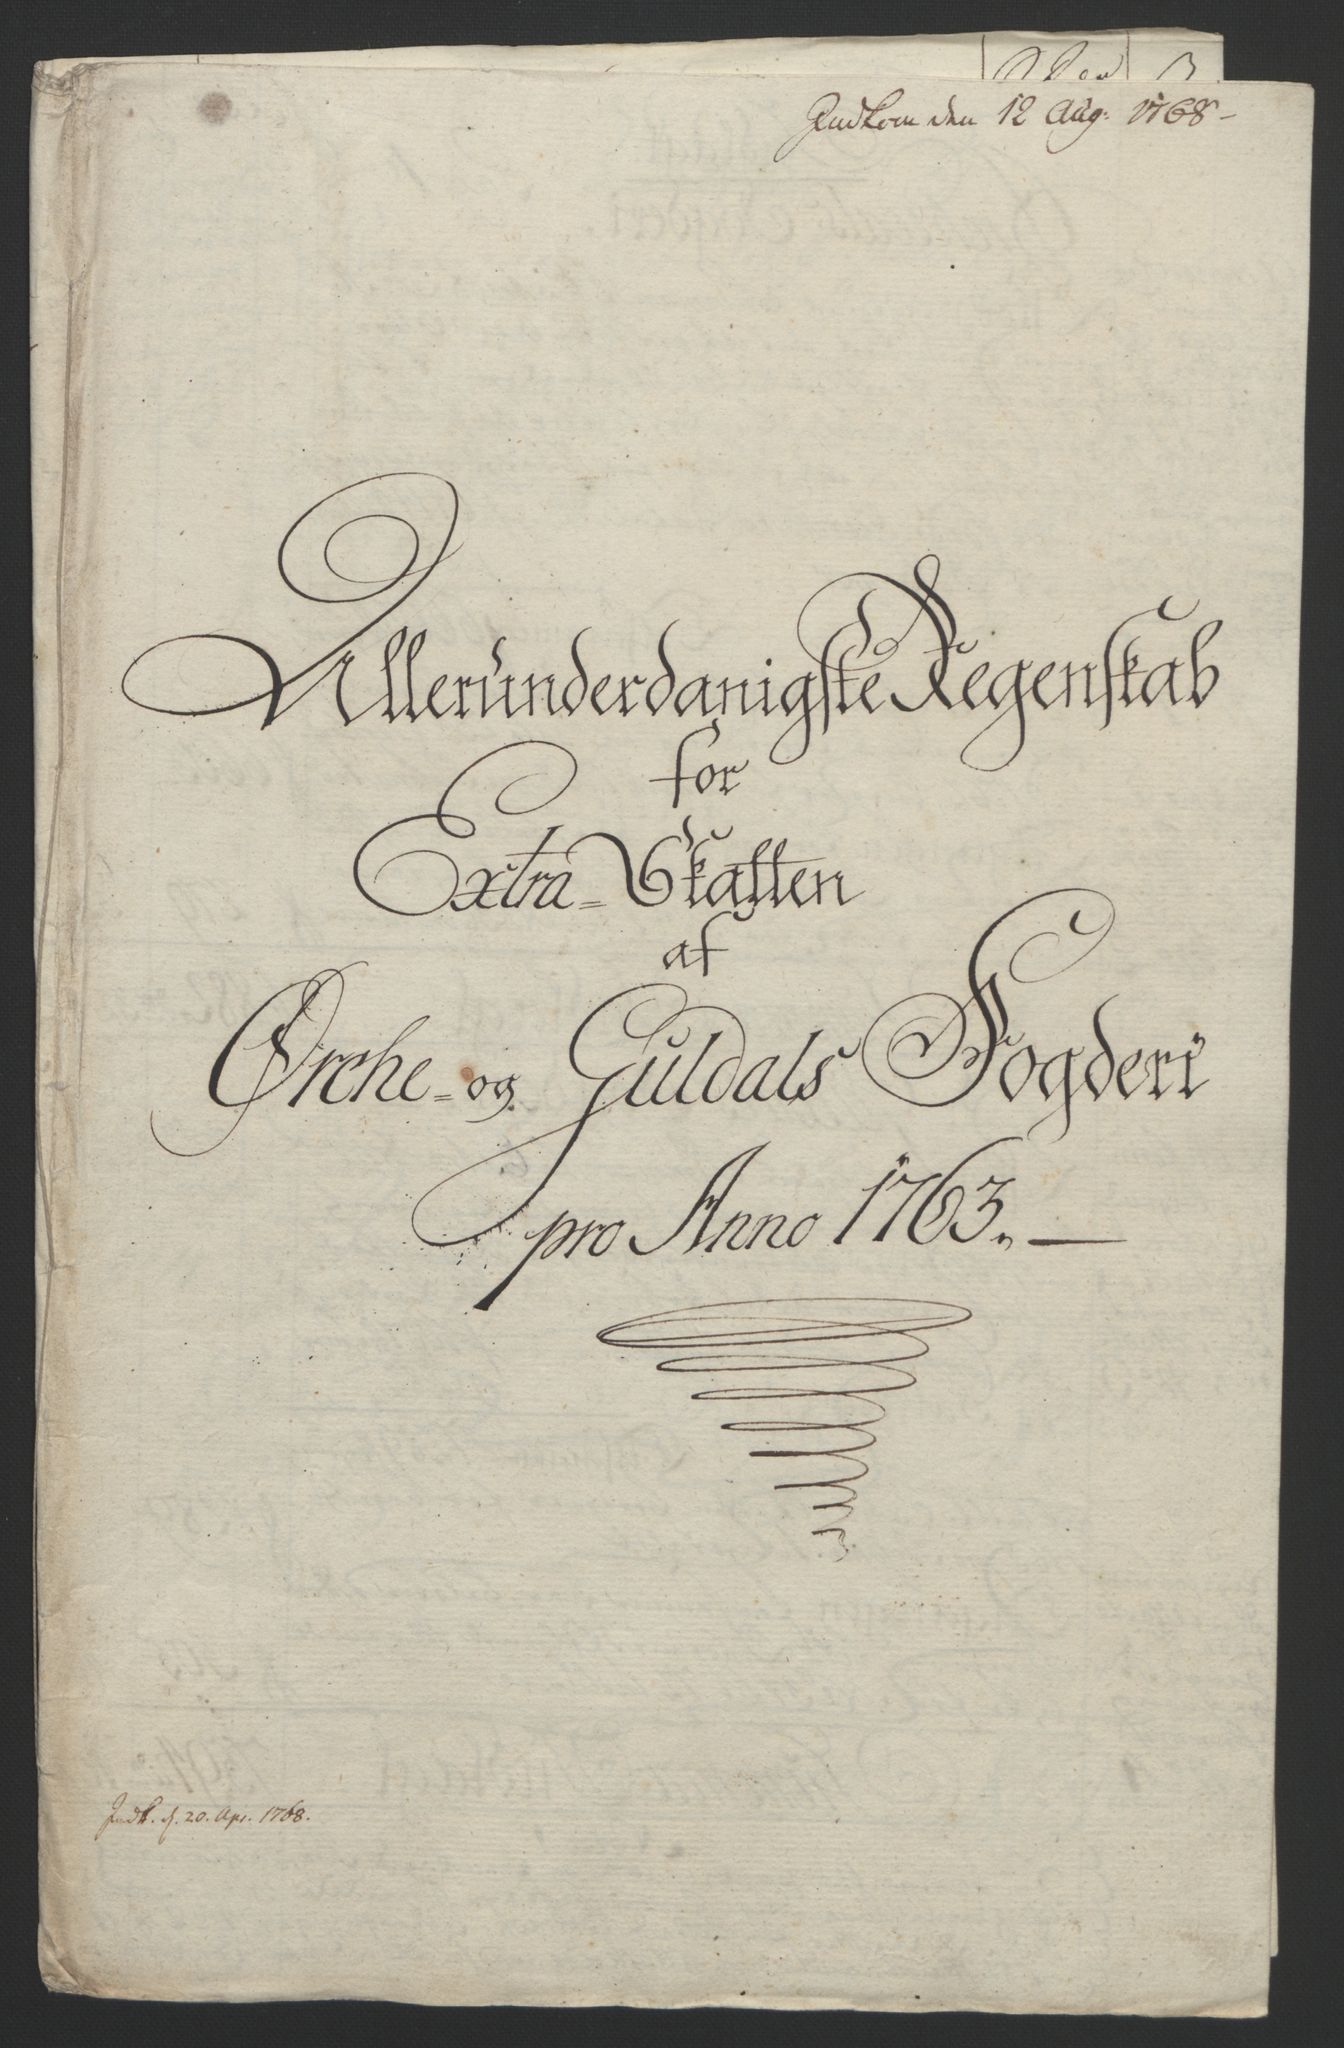 Indkom den 12 Aug: 1768-
Allerunderdanigste Regenskab
for
Extra=Skatten
af
Ørche=og Guldals Fogderi
pro Anno 1763. —
Indk. d. 20. Apr. 1768.